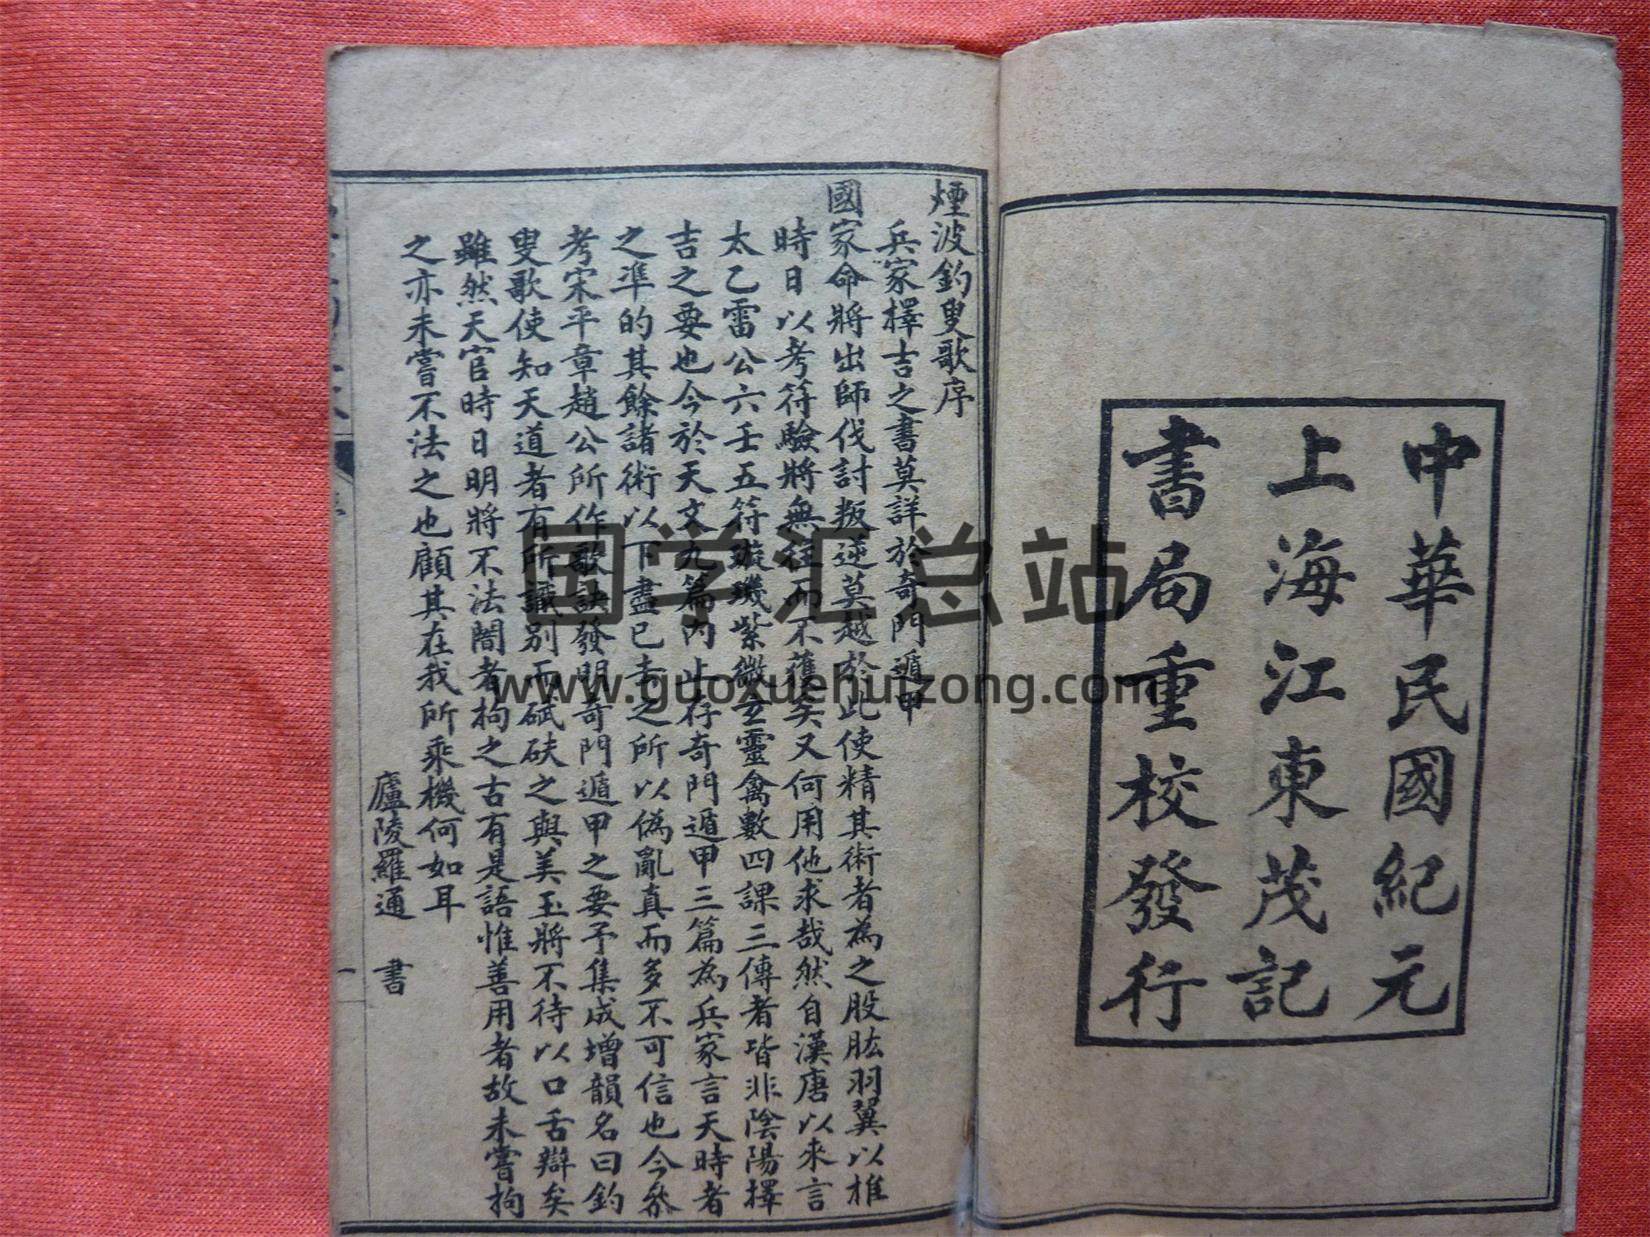 中華民國紀元
上海江東茂記
書局重校發行
煙波釣叟歌序
兵家擇吉之書莫詳於奇門遁甲
國家命將出師伐討叛逆莫越於此使精其術者為之股肱羽翼以推
時日以考符驗將無往而不獲矣又何用他求哉然自漢唐以來言
太乙雷公六壬五符璇璣紫微玄靈禽數四課三傳者皆非陰陽擇
吉之要也今於天文九篇內止存奇門遁甲三篇為兵家言天時者
之凖的其餘諸術以下盡已去之所以偽亂真而多不可信也今叅
考宋平章趙公所作歌訣發明奇門遁甲之要予集成增韻名曰釣
叟歌使知天道者有所識別而碔砆之與美玉將不待以口舌辯矣
雖然天官時日明將不法闇者拘之古有是語惟善用者故未嘗拘
之亦未嘗不法之也顧其在我所乘機何如耳
廬陵羅通 書
一
国学汇总站
www.guoxuehuizong.com